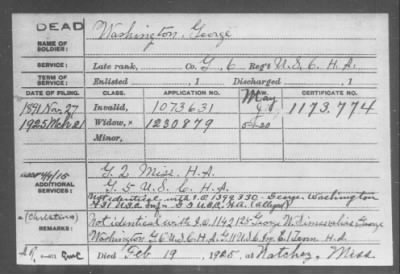 DEAD
Washington, George
NAME OF SOLDIER:
SERVICE: Late rank, Co. G. 6 Reg't U.S.C.H.A.
TERM OF SERVICE: Enlisted , 1 Discharged , 1
DATE OF FILING. CLASS. APPLICATION NO. LAW. CERTIFICATE NO.
1891 Nov. 27 Invalid, 1073631 May 1173.774
1925 Mch 21 Widow, × 1230879 5-1-20
Minor,
ADDITIONAL SERVICES: G. 2 Miss. H.A.
G. 5 U.S.C.H.A.
Not identical with I.O. 1399330 - George Washington
(Christiana)
REMARKS: Not identical with I.O. 1142125 George W. alias George
Washington G 6 U.S.C.H.A. G 11 U.S.C. Inf. C. 1 Tenn. H.A.
Died Feb 19, 1925, at Natchez, Miss